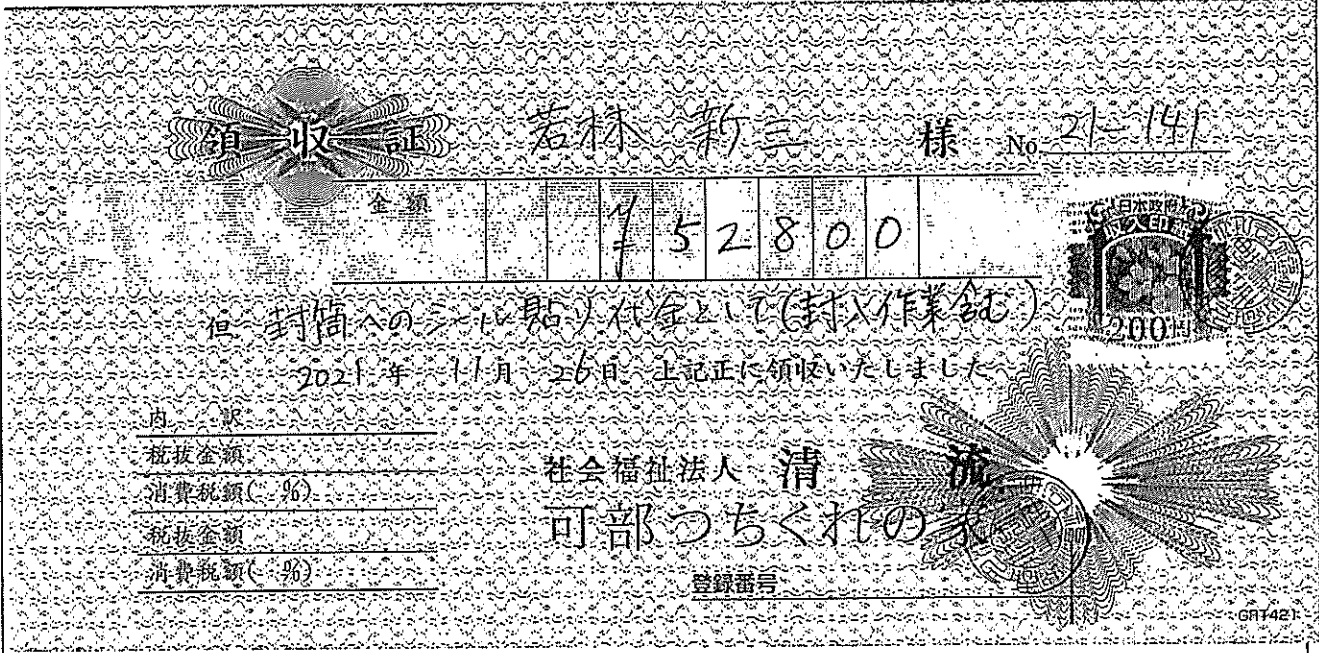 領収証 若林 新三 様 No 21-141
金額 ¥52800
日本政府
収入印紙
200円
但 封筒へのシール貼り代金として(封入作業含む)
2021年 11月 26日 上記正に領収いたしました
内 訳
税抜金額
消費税額( %)
税抜金額
消費税額( %)
社会福祉法人 清 流
可部つちくれの家
登録番号
GR1421